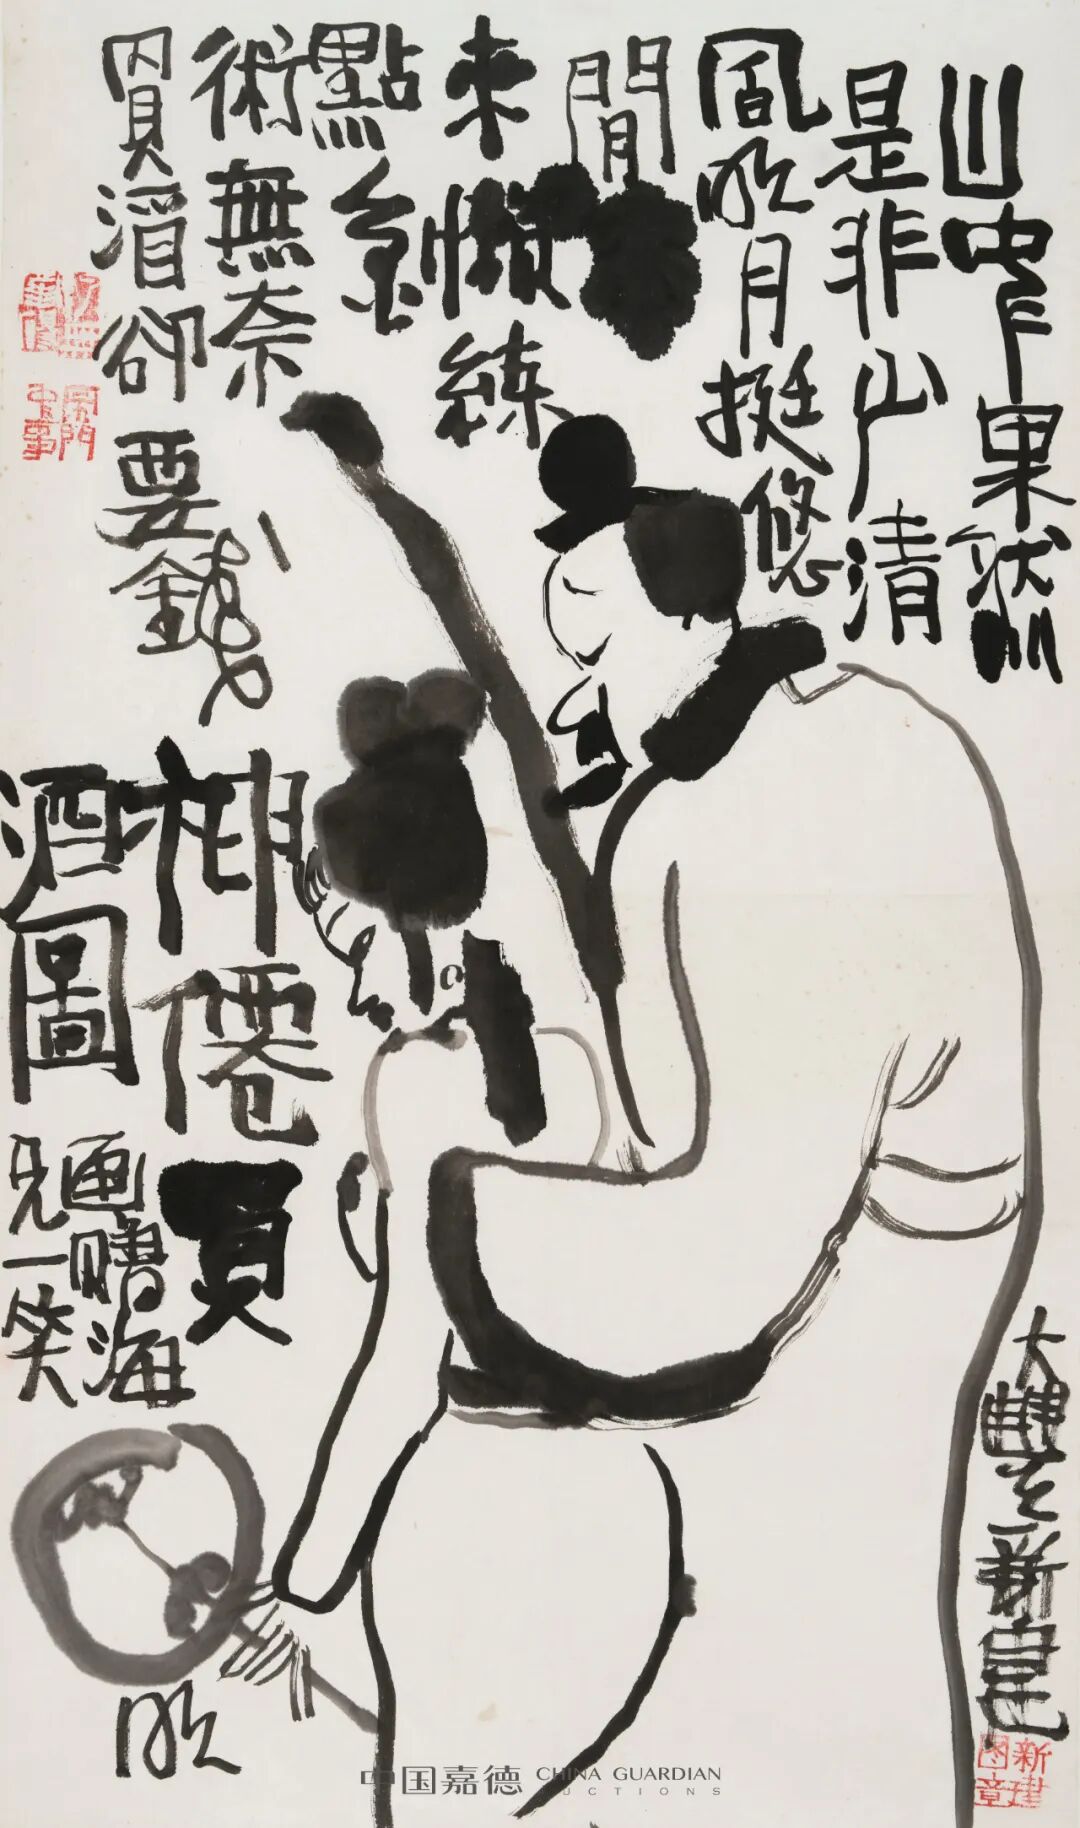 山中果然
是非少清
風明月挺悠
閒
來懶練
點劍
術無奈
買酒卻
要錢
神僊買
酒圖
画贈海
兄一笑
明
大豐
新建
新建
圖章
中国嘉德 CHINA GUARDIAN
AUCTIONS